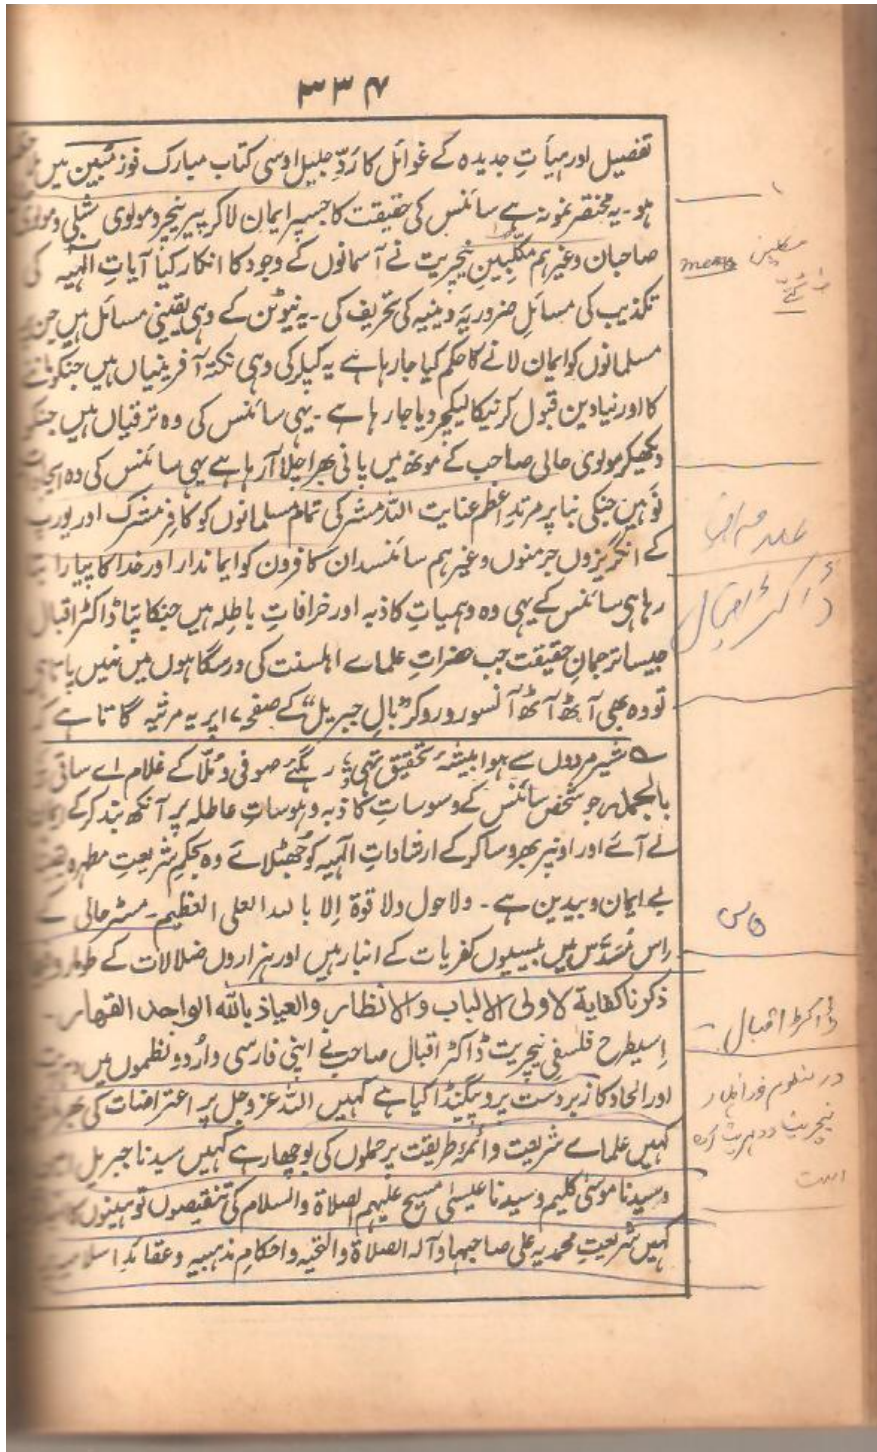 ۳۳۴
تفصیل اور ہیأتِ جدیدہ کے غوائل کا رَدِّ جلیل اوسی کتاب مبارک فوز مُبین میں
ہو۔ یہ مختصر نمونہ ہے سائنس کی حقیقت کا جسپر ایمان لاکر پیر نیچر و مولوی شبلی و مولوی
صاحبان وغیرہم مکلّبینِ نیچریت نے آسمانوں کے وجود کا انکار کیا آیاتِ الٰہیہ کی
تکذیب کی مسائلِ ضروریہ دینیہ کی تحریف کی۔ یہ نیوٹن کے وہی یقینی مسائل ہیں جن
مسلمانوں کو ایمان لانے کا حکم کیا جارہا ہے یہ کپلر کی وہی نکتہ آفرینیاں ہیں جنکو
کا اور نیا دین قبول کرنیکا لیکچر دیا جارہا ہے۔ یہی سائنس کی وہ ترقیاں ہیں جنکو
دیکھکر مولوی حالی صاحب کے مونھ میں پانی بھرا چلا آرہا ہے یہی سائنس کی وہ
نَو ہیں جنکی بنا پر مرتدِ اعظم عنایت اللہ مشرکی تمام مسلمانوں کو کافر مشرک اور یورپ
کے انگریزوں جرمنوں وغیرہم سائنسدان کافروں کو ایماندار اور خدا کا پیارا
رہا ہی سائنس کے یہی وہ وہمیاتِ کاذبہ اور خرافاتِ باطلہ ہیں جنکا پتا ڈاکٹر اقبال
جیسا ترجمانِ حقیقت جب حضراتِ علمائے اہلسنت کی درسگاہوں میں نہیں پاتا
تو وہ بھی آٹھ آٹھ آنسو رو رو کر ”بالِ جبریل“ کے صفحہ ۱۷ پر یہ مرثیہ گاتا ہے
؎ شیر مردوں سے ہوا بیشۂ تحقیق تہی؛ رہگئے صوفی و مُلّا کے غلام اے ساقی
بالجملہ جو شخص سائنس کے وسوساتِ کاذبہ و ہوساتِ عاطلہ پر آنکھ بند کرکے
لے آئے اور اونپر بھروسا کرکے ارشاداتِ الٰہیہ کو جُھٹلائے وہ بحکمِ شریعتِ مطہرہ
بے ایمان و بیدین ہے۔ ولا حول ولا قوۃ اِلا باللہ العلی العظیم۔ مسٹر حالی کے
اِس مُسَدَّس میں بیسیوں کفریات کے انبار ہیں اور ہزاروں ضلالات کے طومار
ذکرنا کفایة لاولی الالباب والانظار والعیاذ باللہ الواحد القھار۔
اِسیطرح فلسفیِ نیچریت ڈاکٹر اقبال صاحب نے اپنی فارسی و اُردو نظموں میں
اور الحاد کا زبردست پروپیگنڈا کیا ہے کہیں اللہ عزوجل پر اعتراضات کی
کہیں علمائے شریعت و ائمۂ طریقت پر حملوں کی بوچھار ہے کہیں سیدنا جبریل
و سیدنا موسٰی کلیم و سیدنا عیسٰی مسیح علیہم الصلاۃ والسلام کی تنقیصوں توہینوں کا
کہیں شریعتِ محمدیہ علی صاحبہا وآلہ الصلاۃ والتحیہ و احکامِ مذہبیہ و عقائدِ اسلامیہ
ڈاکٹر اقبال
ڈاکٹر اقبال